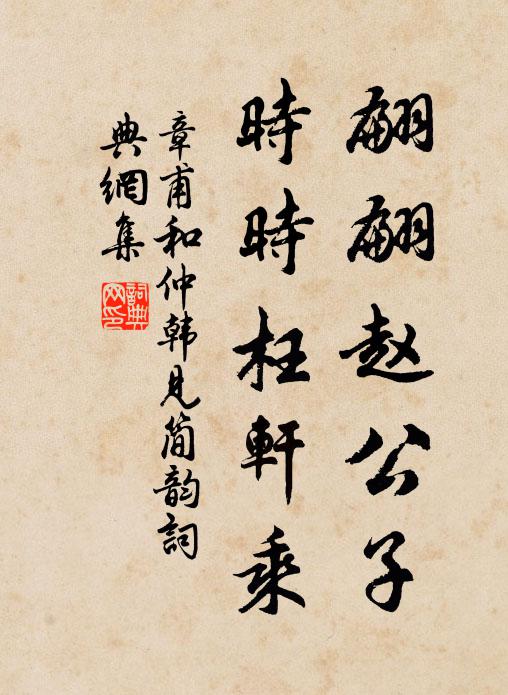 翩翩赵公子
時時枉軒乘
章甫和仲韩見简韵詞
典網集
詞典
网印